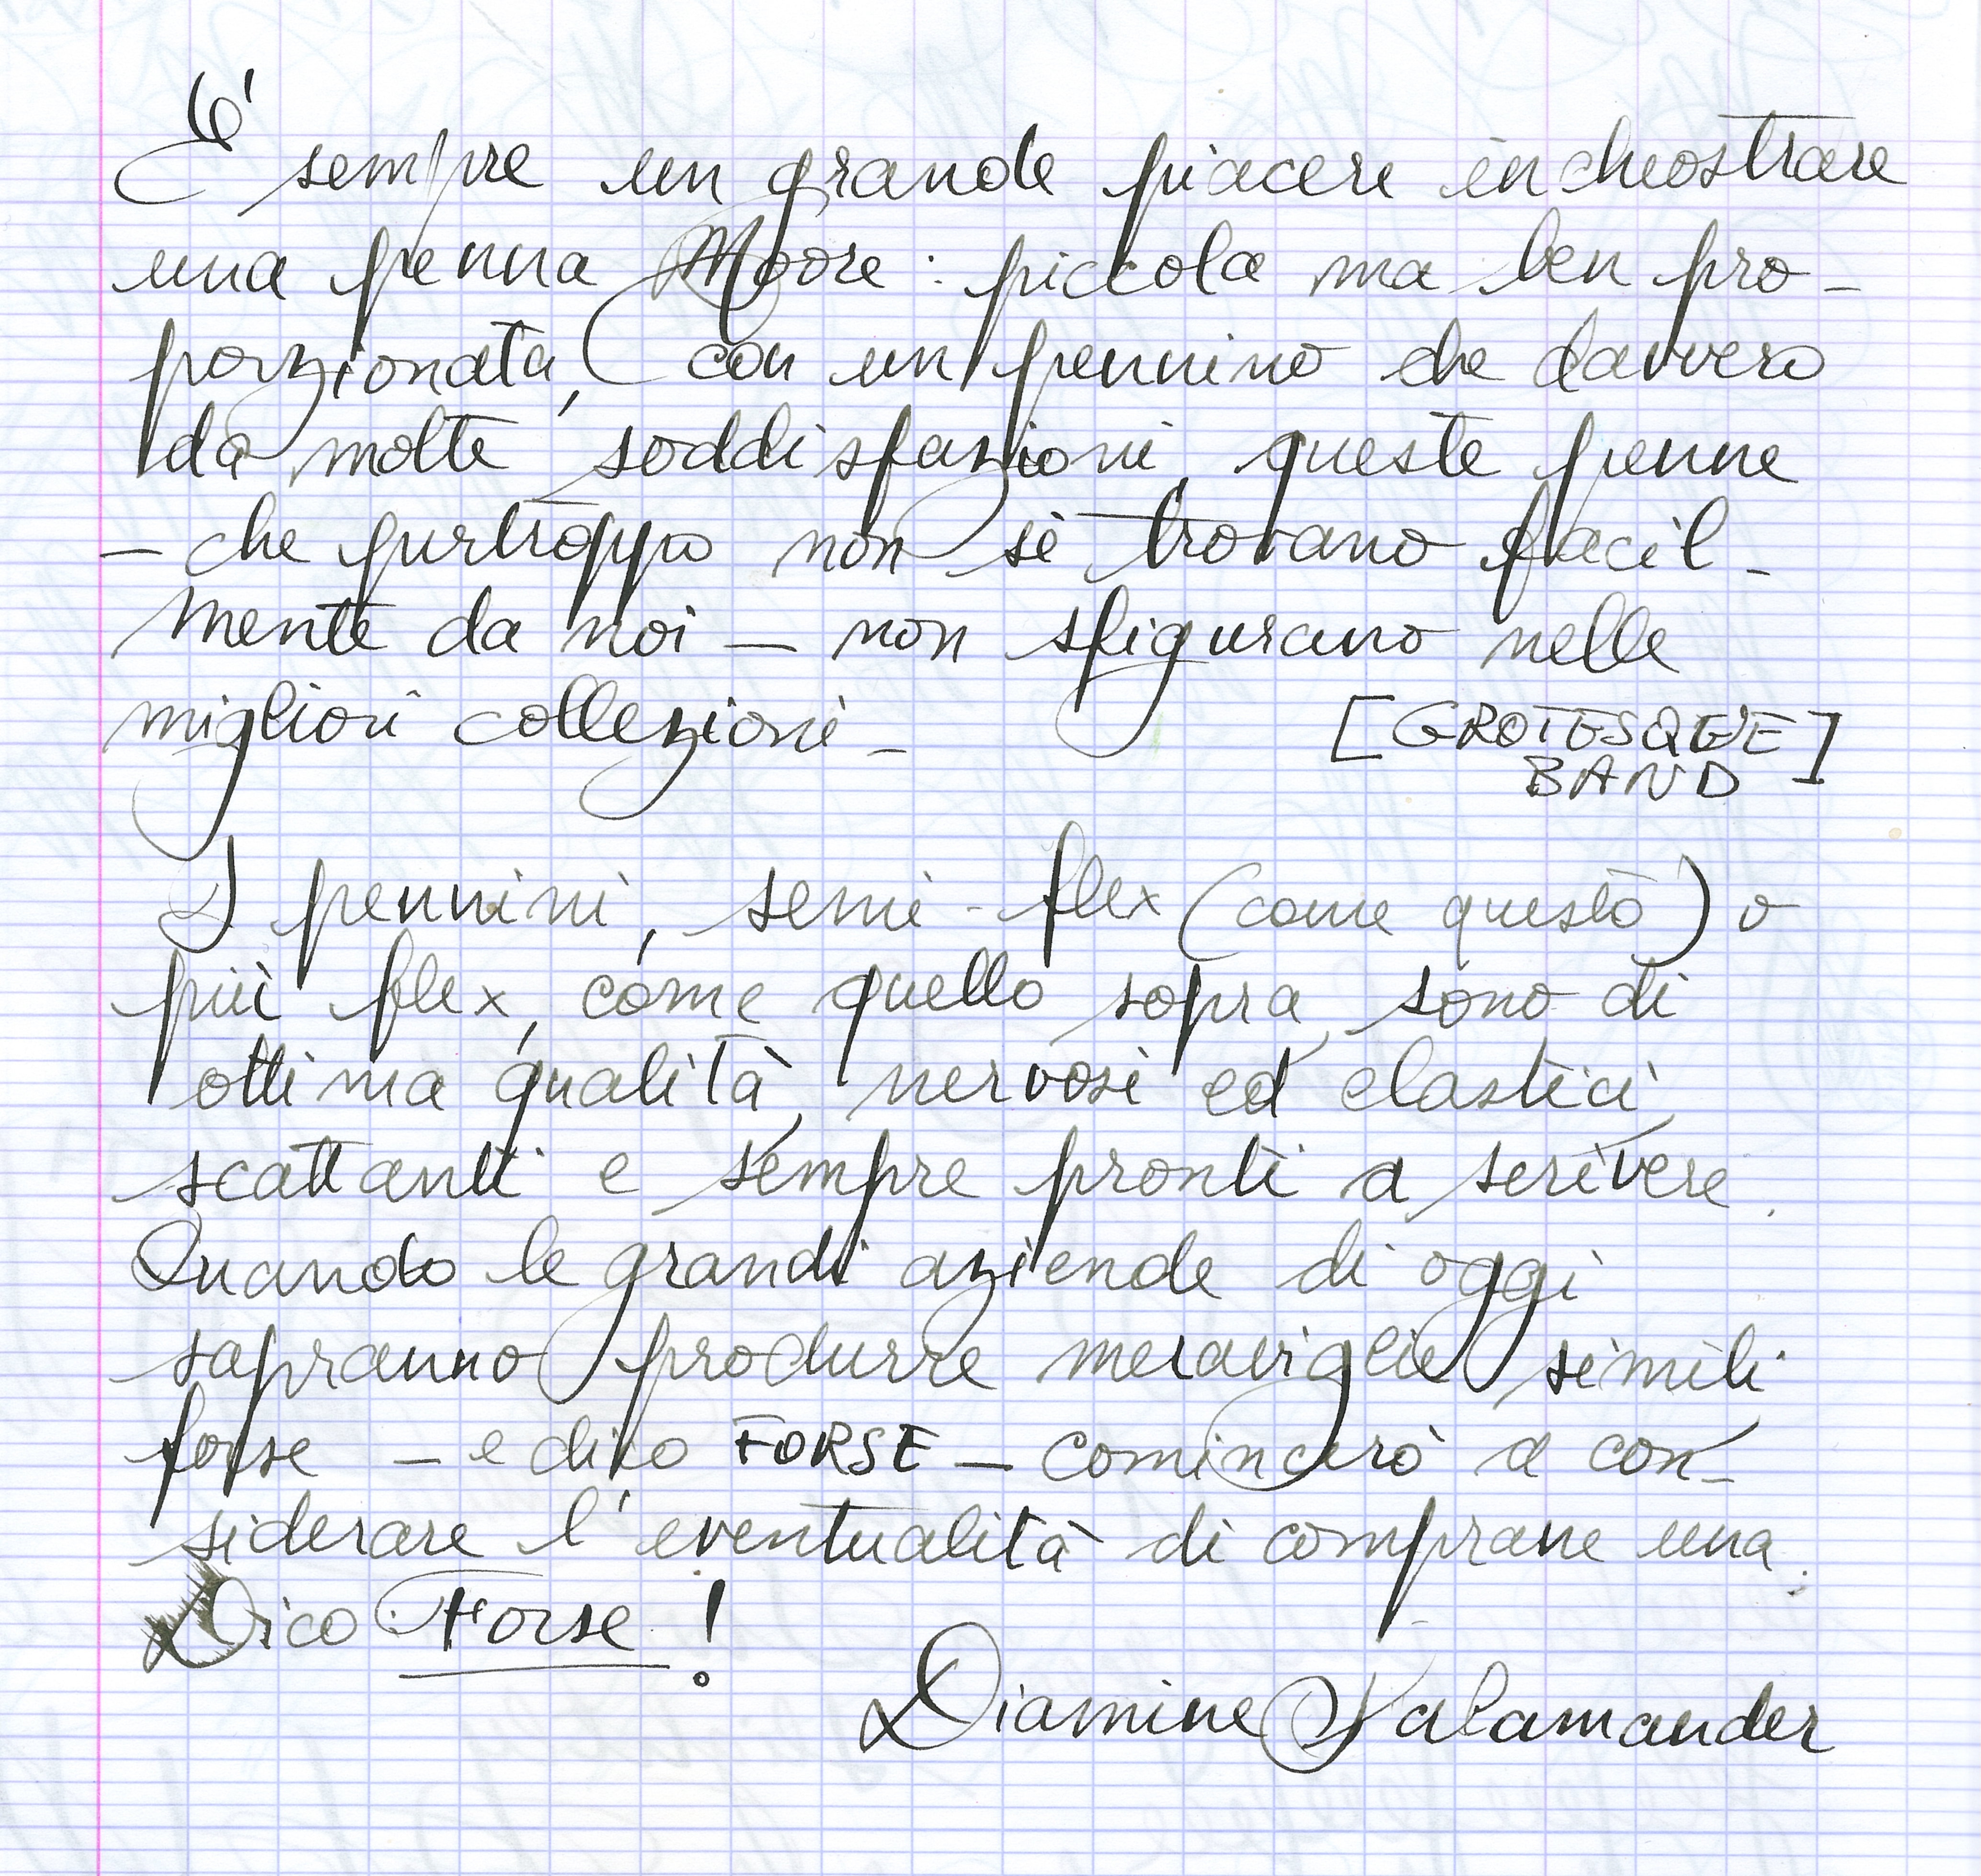 E' sempre un grande piacere inchiostrare
una penna Moore: piccola ma ben pro-
porzionata, con un pennino che davvero
dà molte soddisfazioni, queste penne
- che purtroppo non si trovano facil-
mente da noi - non sfigurano nelle
migliori collezioni -
[GROTESQUE
BAND]
I pennini, semi-flex (come questo) o
più flex, come quello sopra, sono di
ottima qualità, nervosi ed elastici,
scattanti e sempre pronti a scrivere.
Quando le grandi aziende di oggi
sapranno produrre meraviglie simili
forse - e dico FORSE - comincerò a con-
siderare l'eventualità di comprane una.
Dico Forse!
Diamine Salamander